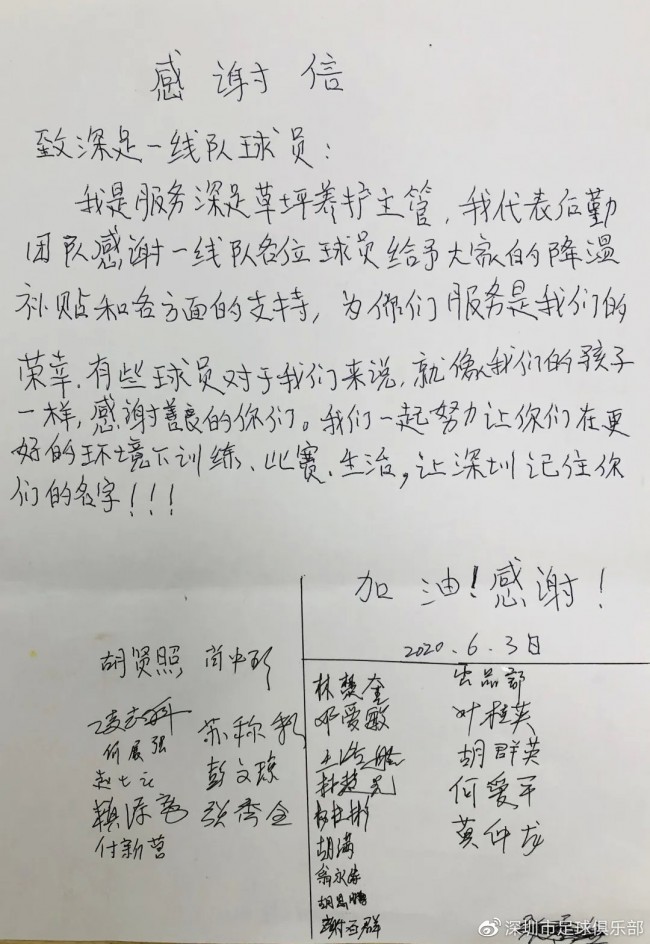 感谢信
致深足一线队球员：
我是服务深足草坪养护主管，我代表后勤
团队感谢一线队各位球员给予大家的降温
补贴和各方面的支持，为你们服务是我们的
荣幸，有些球员对于我们来说，就像我们的孩子
一样，感谢善良的你们。我们一起努力让你们在更
好的环境下训练、比赛、生活，让深圳记住你
们的名字！！！
加油！感谢！
2020.6.3日
胡贤照
何展强
彭文琼
付新营
邓爱敏
胡满
出品部
叶桂英
胡群英
何爱平
莫仲龙
深圳市足球俱乐部